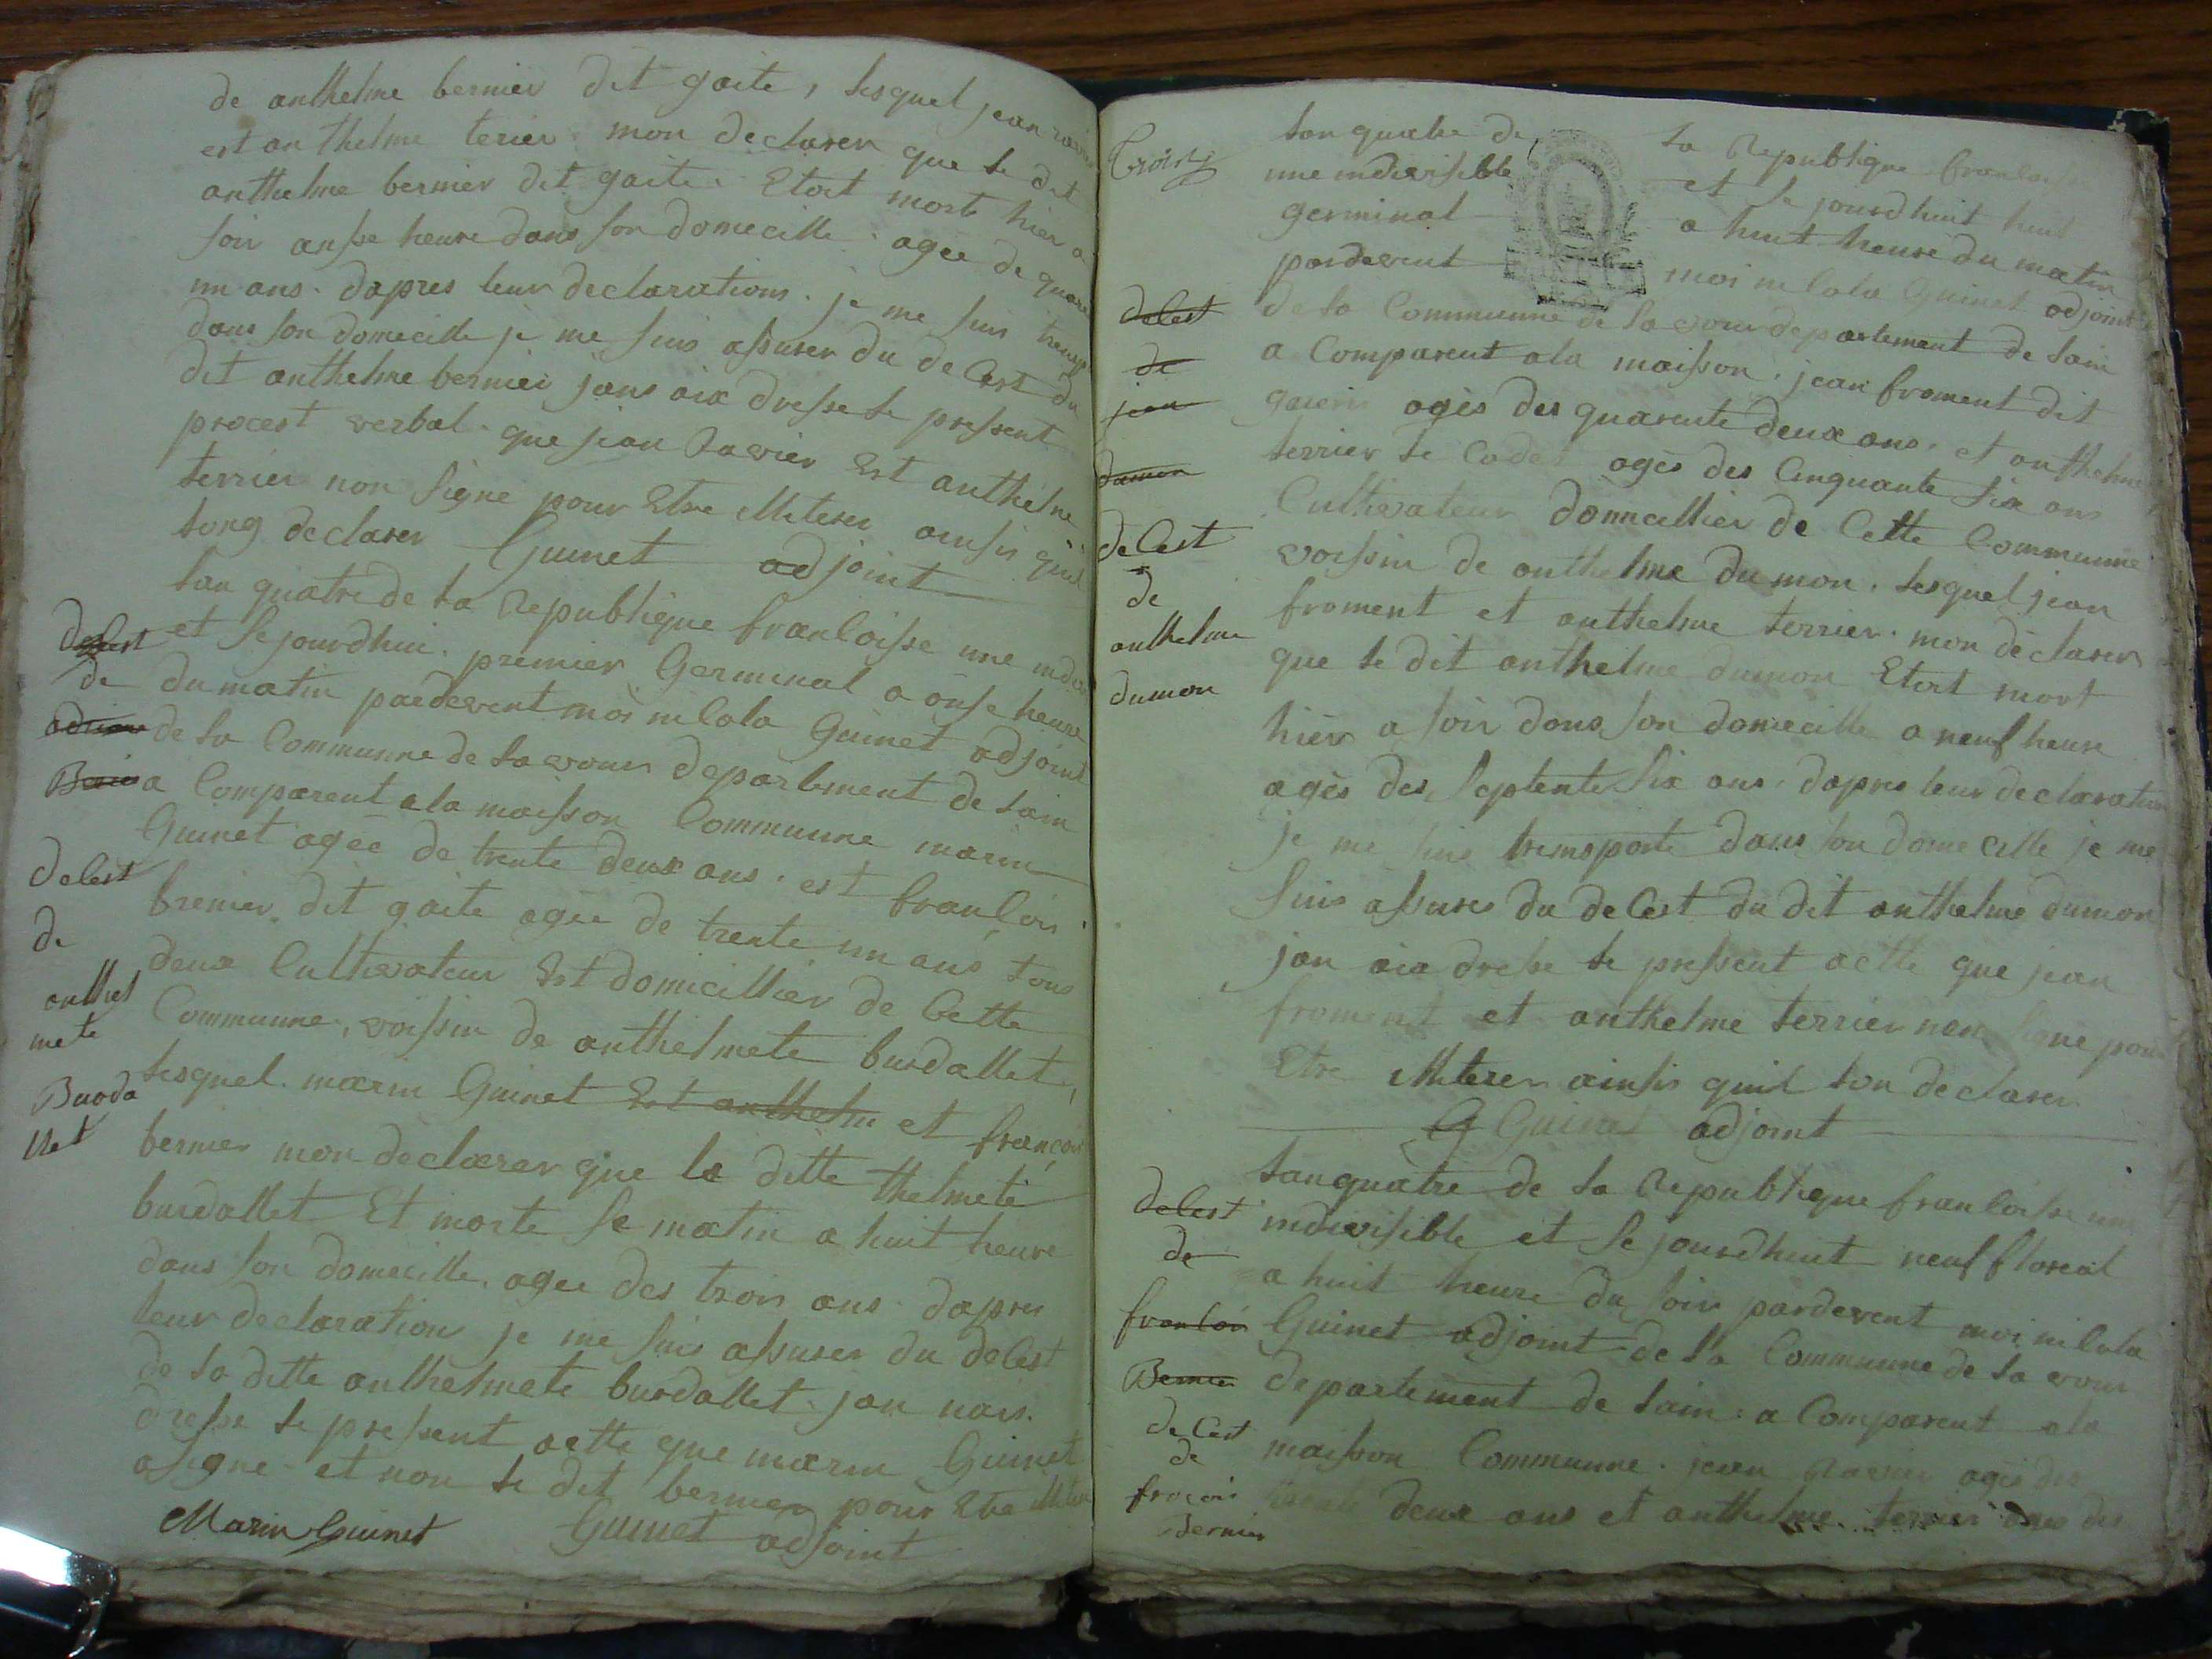 de anthelme bernier dit gaite, lesquel jean ravier
est anthelme terier mon declarer que le dit
anthelme bernier dit gaite Etoit morte hier a
soir onsse heure dans son domecille agee de quarante
un ans dapres leur declarations je me suis transpo
dans son domecille je me suis assurer du decest du
dit anthelme bernier jans aix dresse le pressent
procest verbal que jean Ravier Est anthelme
terrier non signe pour Etre illiterer ainsis quil
long declarer Guinet adjoint
lan quatre de la Republique francloisse une indi
et sejourdhui premier Germinal a onse heure
du matin pardevent moi niclola Guinet adjoint
de la Communne de lavour departement de lain
a Comparent a la maisson Communne marin
Guinet agée de trente deux ans est franclois
bernier dit gaite agée de trente un ans tous
deux Cultivateur Est domicillier de Cette
Communne, voissin de anthelmete burdallet,
lesquel marin Guinet Est anthelm et françois
bernier mon declarer que la ditte thelmete
burdallet Et morte se matin a huit heure
dans son domecille agee des trois ans dapres
leur declaration je me suis assurer du decest
de la ditte anthelmete burdallet jan nais
dresse le pressent actte que marin Guinet
a signe et non le dit bernier pour Etre illiter
Marin Guinet Guinet adjoint
decest
de
adriane
Bernier
decest
de
anthel
mete
Burda
llet
lan quatre de la Republique francloisse
une indivissible et sejourdhuit huit
germinal a huit heure du matin
pardevent moi niclola Guinet adjoint
de la Communne de lavour departement de lain
a Comparent ala maisson jean froment dit
agès des quarente deux ans et anthelme
terrier le Cadet agès des Cinquante six ans
Cultivateur domicillier de Cette Communne
voissin de anthelme dumon lesquel jean
froment et anthelme terrier mon déclarer
que le dit anthelme dumon Etoit mort
hier a soir dans son domecille a neuf heure
agès des septente six ans dapres leur declaration
je me suis transporte dans son domecille je me
suis assures du decest du dit anthelme dumon
jan aix dresse le pressent actte que jean
froment et anthelme terrier non signe pour
Etre illiterer ainsis quil lon declarer
G Guinet adjoint
lan quatre de la Republique francloisse une
indivissible et sejourdhuit neuf floreal
a huit heure du soir pardevent moi niclola
Guinet adjoint de la Communne de lavour
departement de lain a Comparent ala
maisson Communne jean Ravier agès des
trente deux ans et anthelme terrier ages des
decest
de
jean
dumon
decest
de
anthelme
dumon
decest
de
francloi
Bernier
decest
de
froçois
Bernier